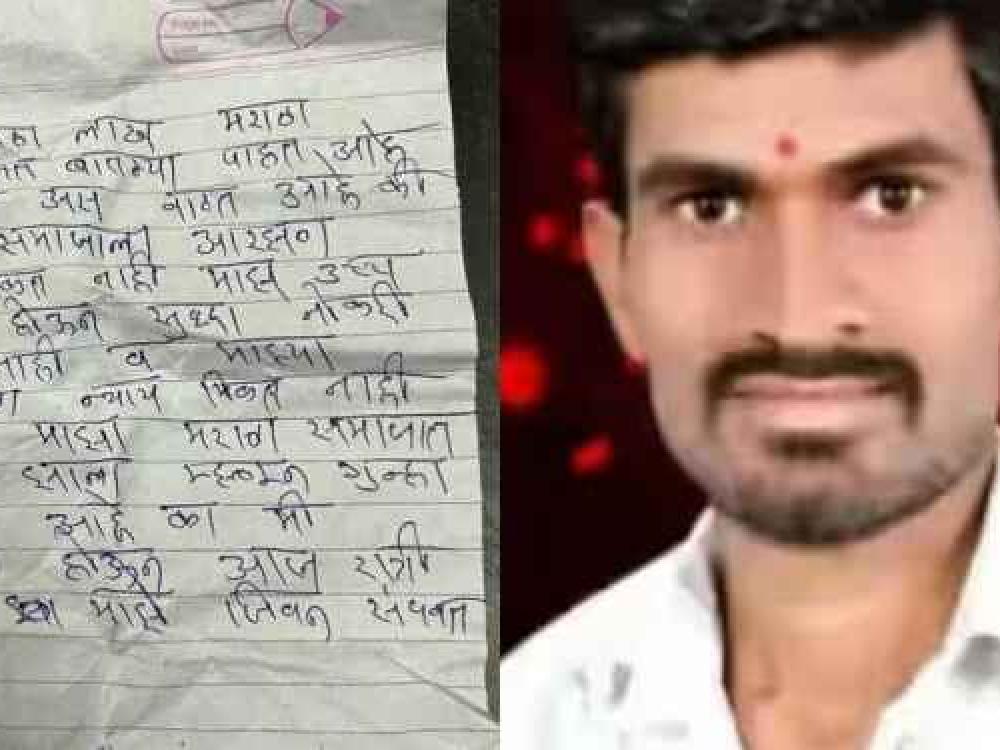 लाख मराठा
बातम्या पाहत आहे
अस वाटत आहे की
समाजाला आरक्षण
नाही माझे उच्च
होऊन सुध्दा नोकरी
नाही व माझ्या
न्याय मिळत नाही
माझा मराठा समाजात
झाला म्हणून गुन्हा
आहे का मी
होऊन आज रात्री
माझे जिवन संपवत